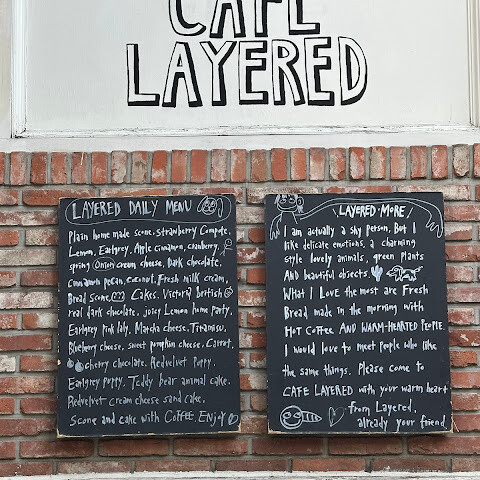 CAFE
LAYERED
LAYERED DAILY MENU
Plain home made scone. Strawberry Compote.
Lemon, Earlgrey. Apple cinnamon, cranberry,
spring Onion cream cheese, Dark chocolate.
cinnamon pecan, coconut. Fresh milk cream,
Bread Scone, Cakes. Victoria British
real dark chocolate, juicy Lemon home party,
Earlgrey pink lily, Matcha cheese. Tiramisu.
Blueberry cheese, sweet pumpkin cheese. Carrot,
cherry chocolate. Redvelvet Poppy.
Earlgrey poppy. Teddy bear animal cake.
Redvelvet cream cheese sand cake.
Scone and cake with COFFEE ENJOY
LAYERED·MORE
I am actually a shy person, But I
like delicate emotions, a charming
style lovely animals, green plants
And beautiful objects
What I Love the most are Fresh
Bread made in the morning with
HOT COFFEE AND WARM-HEARTED PEOPLE
I would love to meet people who like
the same things. Please come to
CAFE LAYERED with your warm heart
from Layered,
already your friend